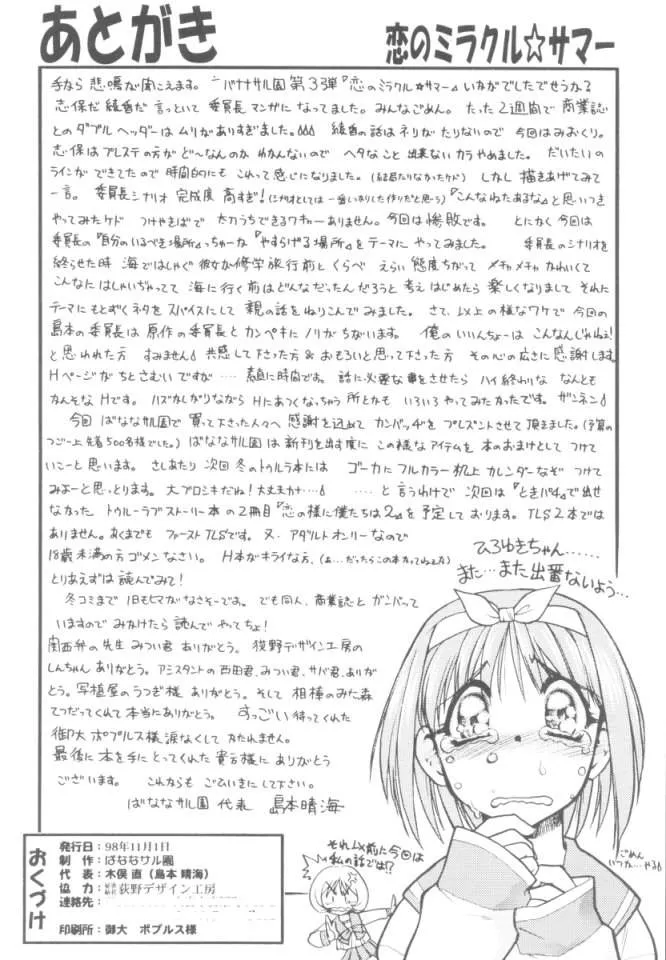 あとがき
恋のミラクル☆サマー
手から悲鳴が聞こえます。バナナサル園第33弾『恋のミラクル☆サマー』いかがでしたでせうか?
志保だ綾香だ言っといて委員長マンガになってました。みんなごめん。たった2週間で商業誌
とのダブルヘッダーはムリがありすぎました。綾香の話はネリがたりないので今回はみおくり。
志保はプレステの方がど〜なんのかわかんないのでヘタなこと出来ないカラやめました。だいたいの
ラインができてたので時間的にもこれって感じになりました。しかし描きあげてみて
一言。委員長シナリオ完成度高すぎ!『こんなねたあるな』と思いつき
やってみたケド つけやきばで太刀うちできるワキャーありません。今回は惨敗です。とにかく今回は
委員長の『自分のいるべき場所』っちゅーか『やすらげる場所』をテーマにやってみました。委員長のシナリオを
終らせた時 海ではしゃぐ彼女が修学旅行前とくらべえらい態度ちがってメチャメチャかわいくて
こんなにはしゃいぢゃってて海に行く前はどんなだったんだろうと考えはじめたら楽しくなりまして それに
テーマにもとずくネタをスパイスにして親の話をねりこんでみました。さて、以上の様なワケで今回の
島本の委員長は原作の委員長とカンペキにノリがちがいます。俺のいいんちょーはこんなんじゃねぇ!
と思われた方 すみません 共感して下さった方&おもろいと思って下さった方 その心の広さに感謝します。
Hページがちとさむいですが‥‥素直に時間です。話に必要な事をさせたらハイ終わりな なんとも
かんそなHです。ハズかしがりながらHにあつくなっちゃう所とかもいろいろやってみたかったです。ザンネン
今回ばななサル園で買って下さった人々へ感謝を込めてカンバッヂをプレゼントさせて頂きました。(予算の
つごー上先着500名様でした。)ばななサル園は新刊を出す度にこの様なアイテムを本のおまけとしてつけて
いこーと思います。さしあたり次回冬のトゥルラブ本にはゴーカにフルカラー机上カレンダーなぞつけて
みよーと思っとります。大ブロシキだね!大丈夫か‥‥‥と言うわけで次回は『ときパチ』で出せ
なかったトゥルーラブストーリー本の2冊目『恋の様に僕たちは2』を予定しております。TLS2本では
ありません。あくまでもファーストTLSです。又、アダルトオンリーなので
18歳未満の方ゴメンなさい。H本がキライな方、(あ…だったらこの本カッてねえな)
とりあえずは読んでみて!
冬コミまで1日もヒマがなさそーです。でも同人、商業誌とガンバって
いますのでみかけたら読んでやってちょ!
関西弁の先生みつい君ありがとう。荻野デザイン工房の
しんちゃんありがとう。アシスタントの西田君、みつい君、サバ君、ありが
とう。写植屋のうつぎ様ありがとう。そして相棒のみた森
てつだってくれて本当にありがとう。すっごい待ってくれた
御大ポプルス様涙なくしてかたれません。
最後に本を手にとってくれた貴方様にありがとう
ございます。これからもごひいきにして下さい。
ばななサル園 代表 島本晴海
ひろゆきちゃん‥‥‥
また…また出番ないよう…
ごめん
いつか…やる
それ以前に今回は
私の話では!?
おくづけ
発行日：98年11月1日
制 作：ばななサル園
代 表：木俣 直（島本 晴海）
協 力：荻野デザイン工房
連絡先：
印刷所：御大 ポプルス様